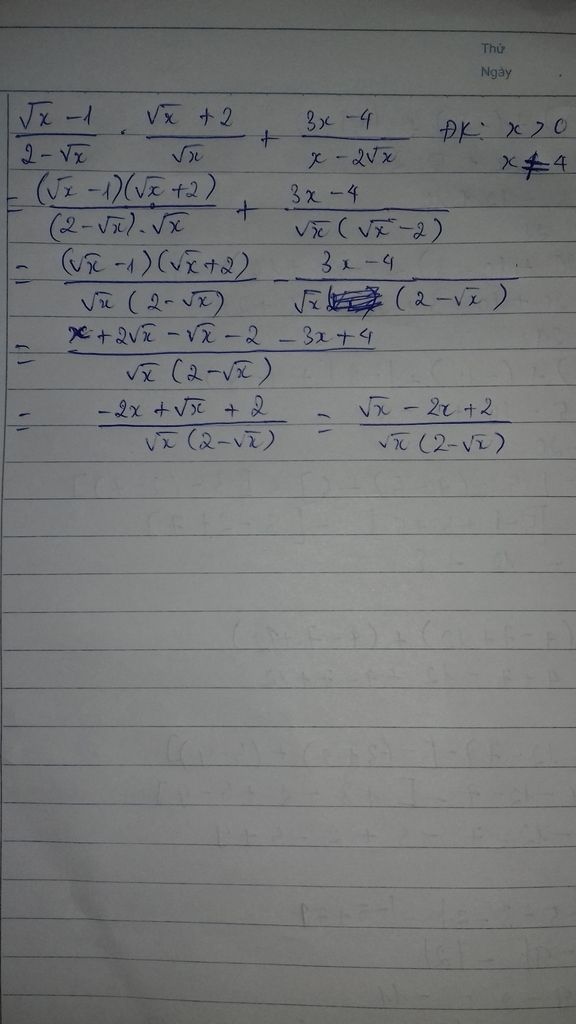 Thứ
Ngày
(√x − 1)/(2 − √x) . (√x + 2)/√x + (3x − 4)/(x − 2√x) ĐK: x > 0
x ≠ 4
= (√x − 1)(√x + 2)/((2 − √x).√x) + (3x − 4)/(√x(√x − 2))
= (√x − 1)(√x + 2)/(√x(2 − √x)) − (3x − 4)/(√x(2 − √x))
= (x + 2√x − √x − 2 − 3x + 4)/(√x(2 − √x))
= (−2x + √x + 2)/(√x(2 − √x)) = (√x − 2x + 2)/(√x(2 − √x))